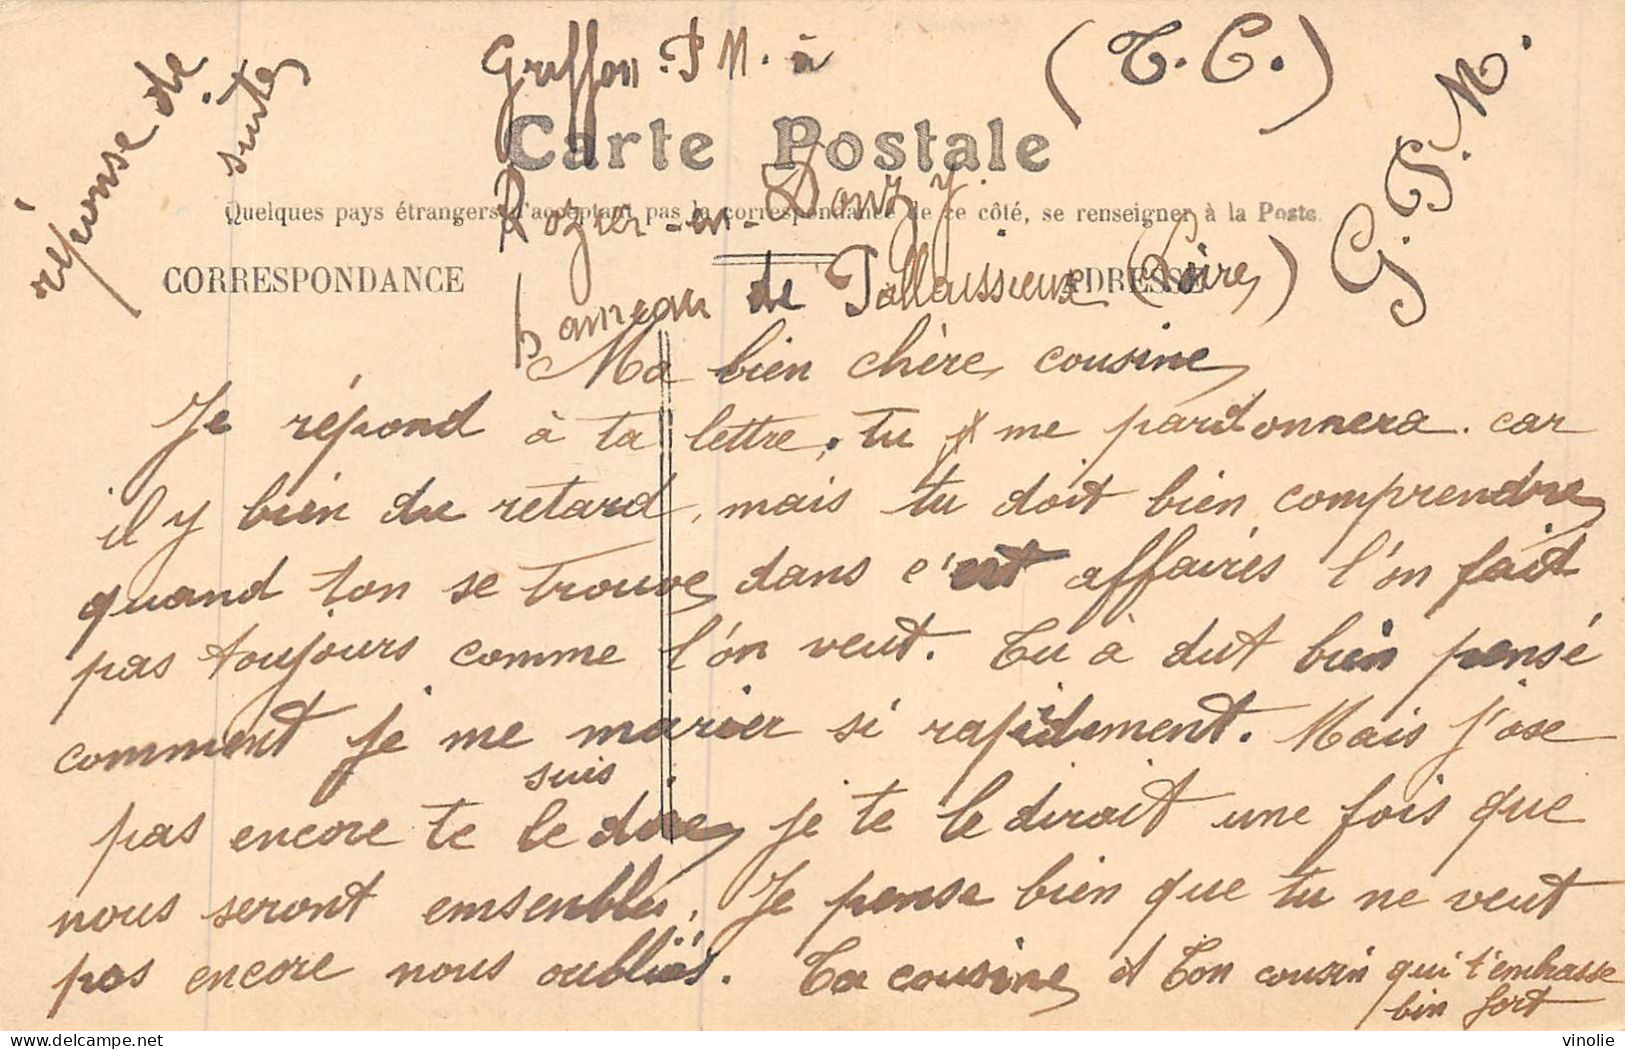 réponse de
suite
Griffon. P M. à
(T. C.)
G. P. M.
Carte Postale
Rozier-en-Donzy.
Quelques pays étrangers n'acceptant pas la correspondance de ce côté, se renseigner à la Poste.
CORRESPONDANCE
ADRESSE
hameau de Pallaissieux (Loire)
Ma bien chère cousine
Je répond à ta lettre, tu me pardonnera. car
il y bien du retard, mais tu doit bien comprendre
quand ton se trouve dans c'est affaires l'on fait
pas toujours comme l'on veut. Tu à dut bien pensé
comment je me marier si rapidement. Mais j'ose
suis
pas encore te le dire je te le dirait une fois que
nous seront emsembles. Je pense bien que tu ne veut
pas encore nous oubliés. Ta cousine et Ton cousin qui t'embrasse
bin fort
vinolie